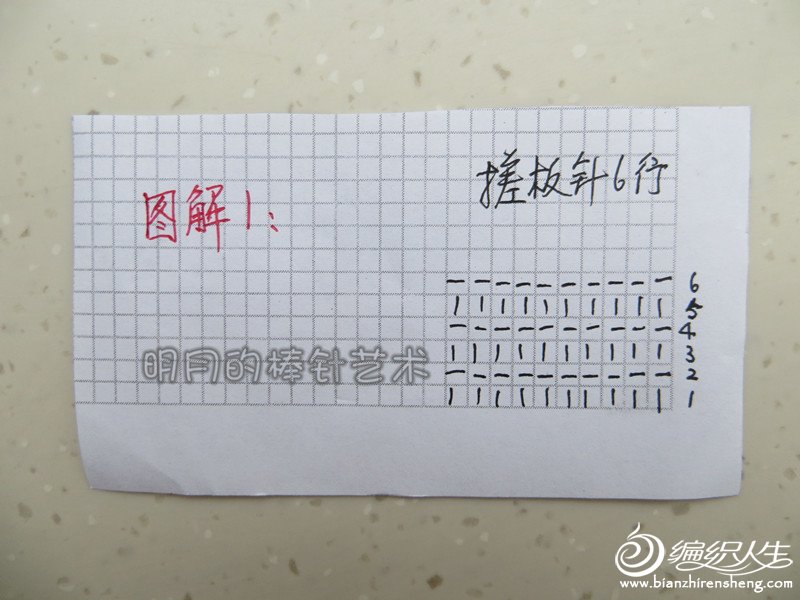 搓板针6行
图解1:
6
5
4
3
2
1
明月的棒针艺术
编织人生
www.bianzhirensheng.com